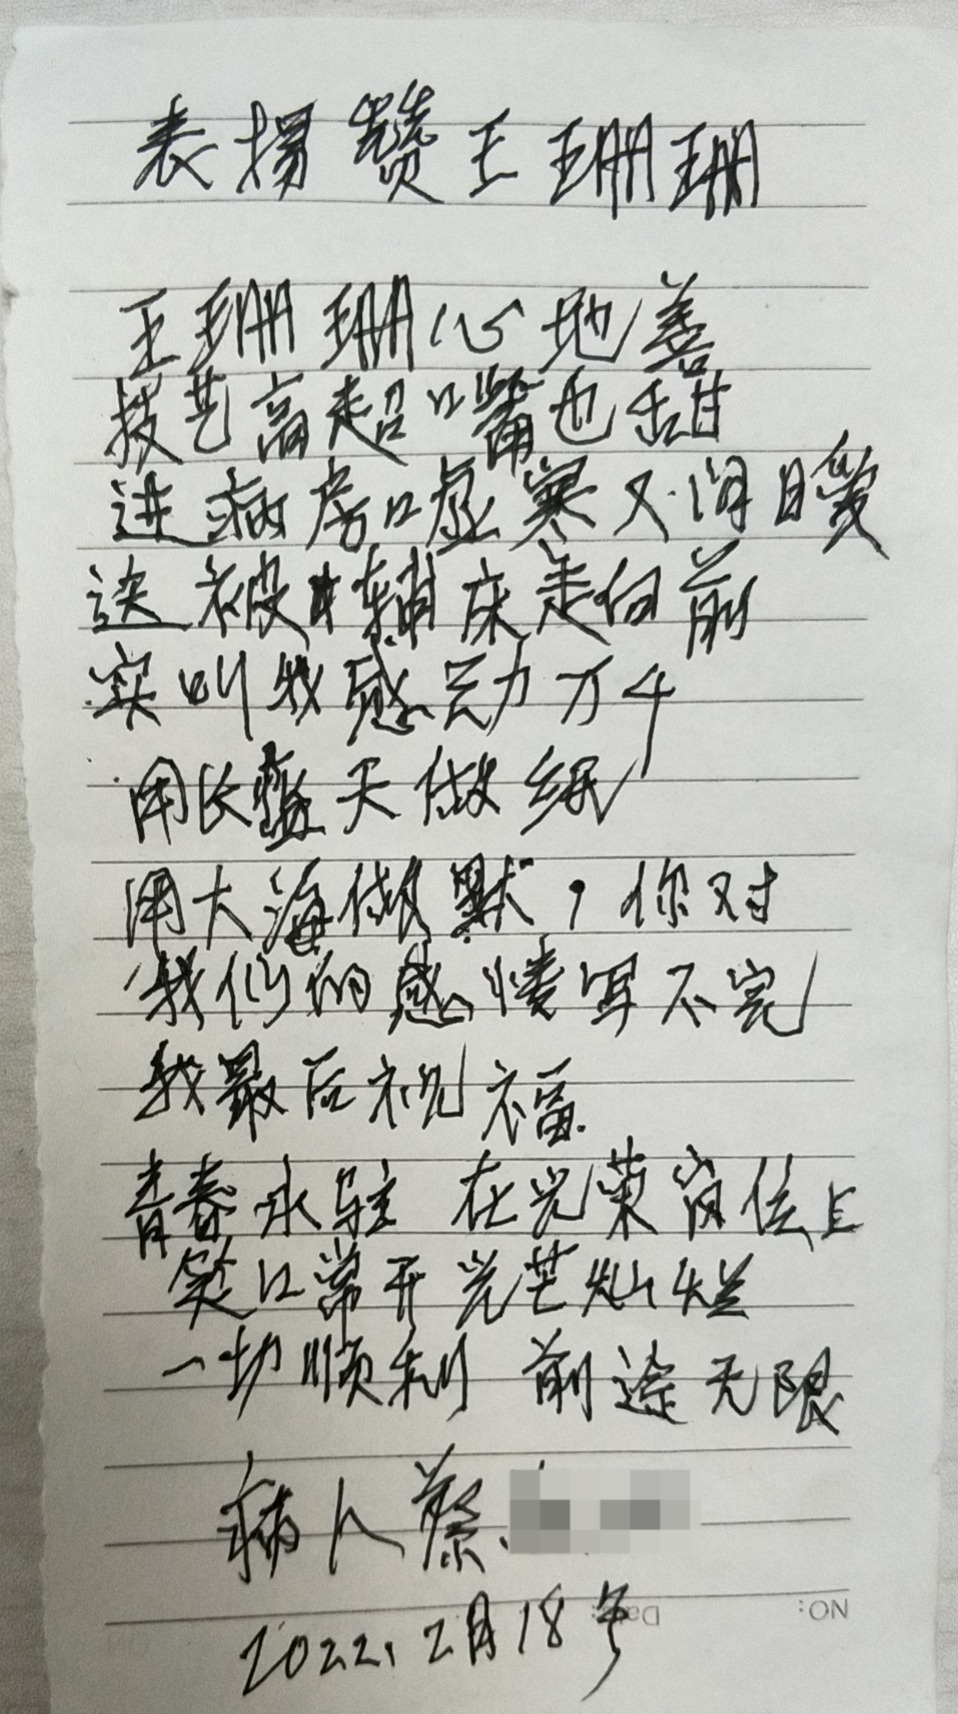 表揚赞王珊珊
王珊珊心地善
技艺高超口嘴也甜
进病房口虚寒又问日暖
送被辅床走向前
实叫我感动万千
用长蓝天做纸
用大海做默，你对
我们的感情写不完
我最后祝福
青春永驻 在光荣岗位上
笑口常开光芒灿烂
一切顺利 前途无限
病人蔡
2022.2月18号
Date:
NO: